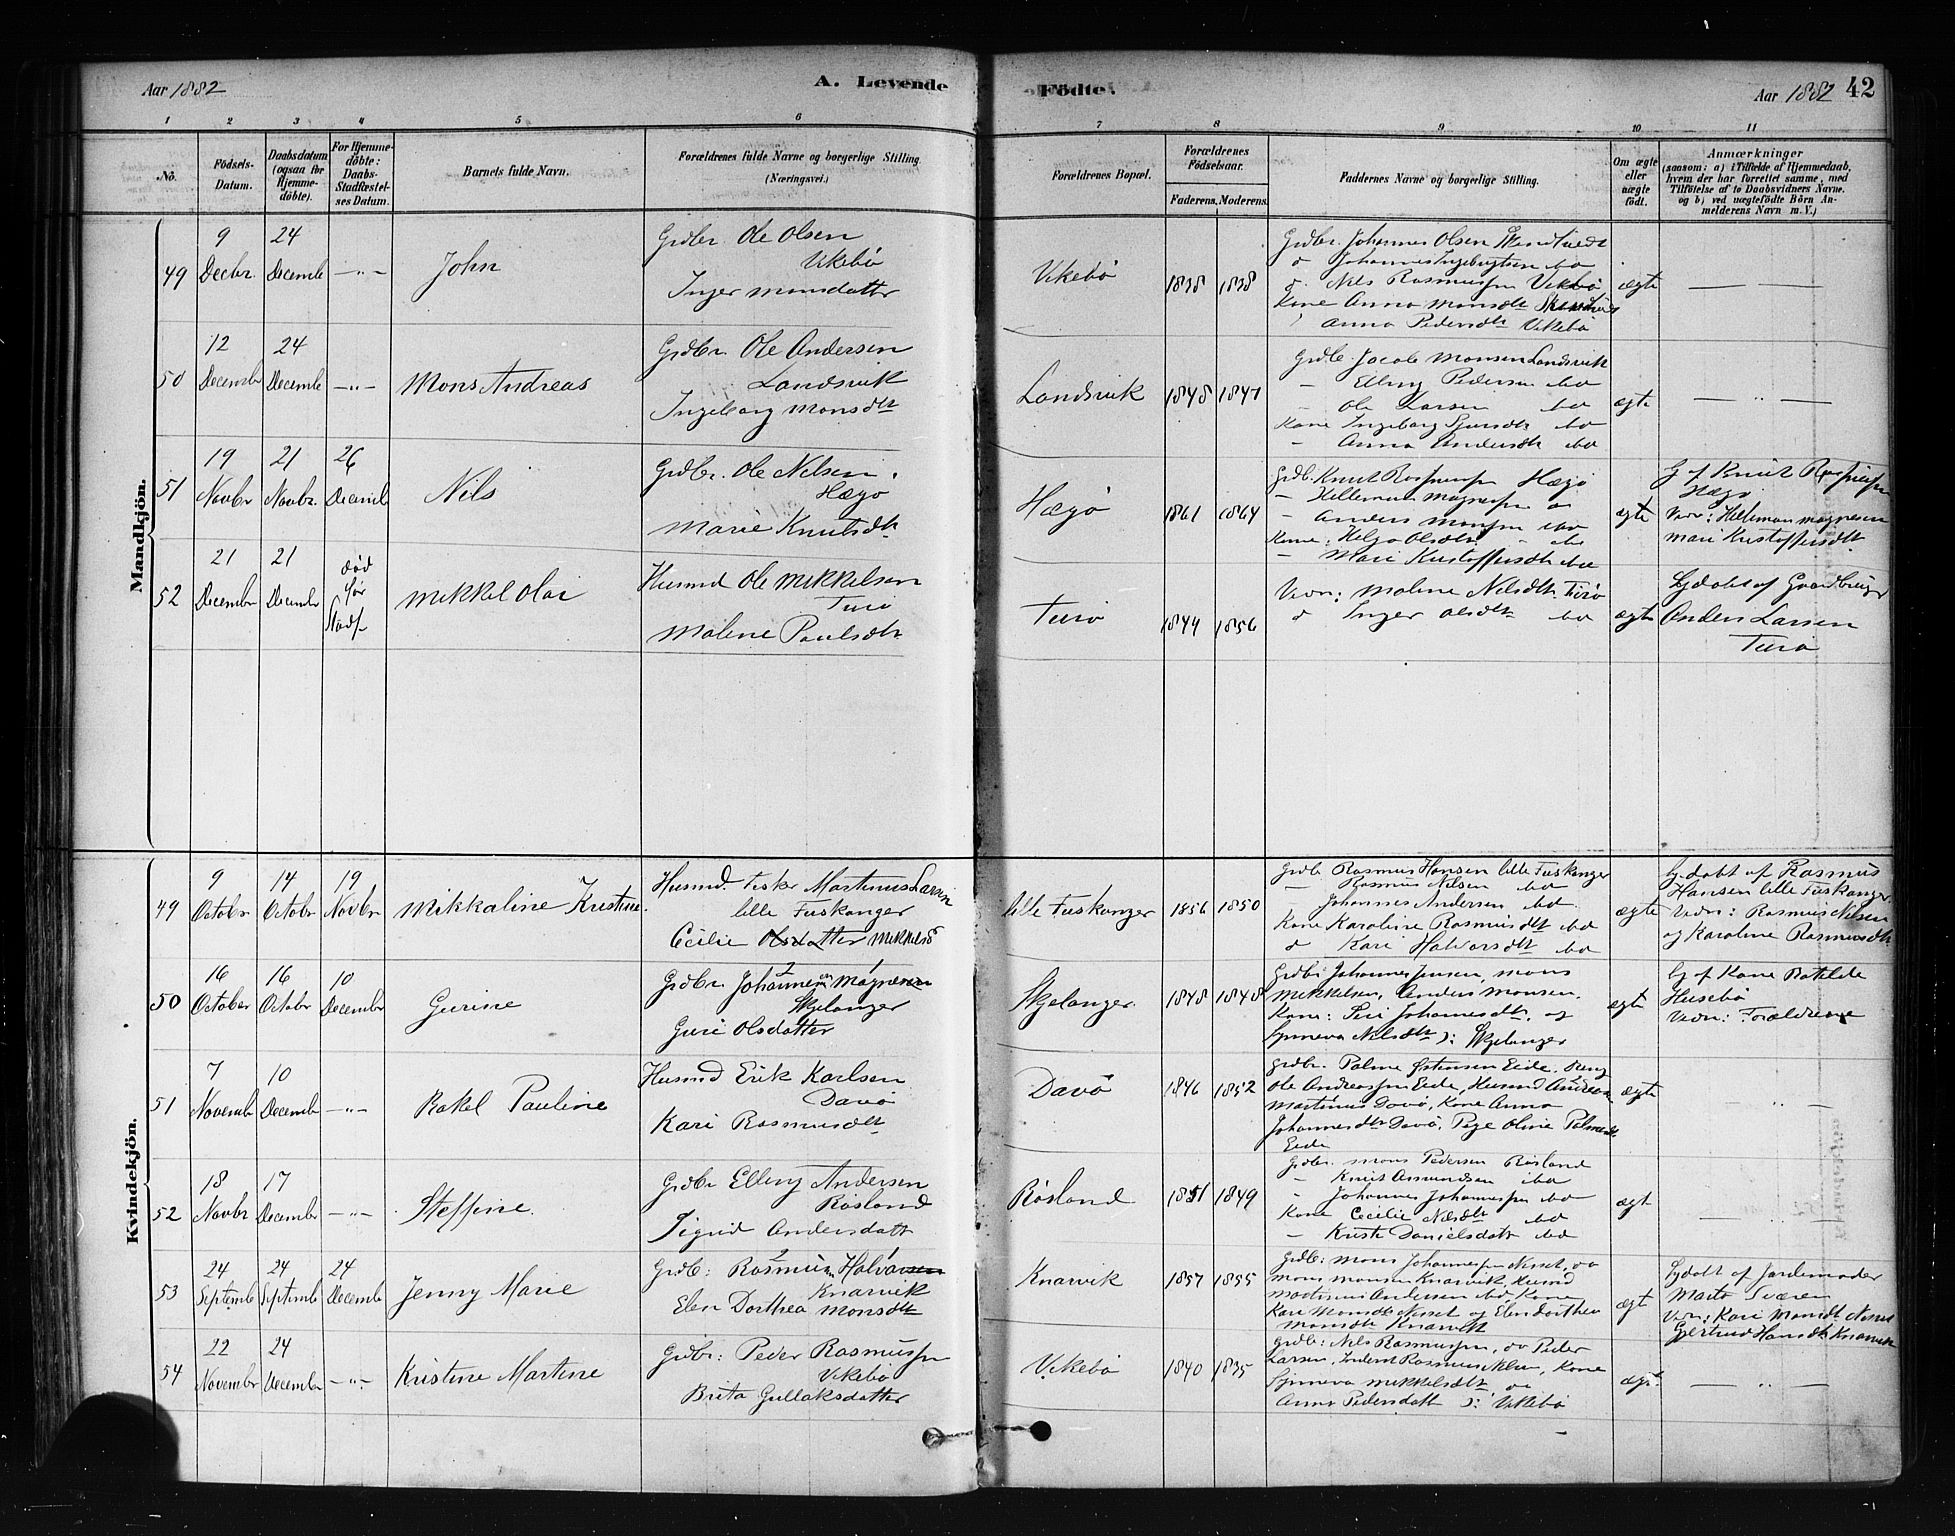 Aar 1882
A. Levende
Födte.
Aar 1882 42
1 2 3 4 5 6 7 8 9 10 11
No.
Födsels-Datum.
Daabsdatum (ogsaa for Hjemme-döbte).
For Hjemme-döbte: Daabs-Stadfæstel-ses Datum.
Barnets fulde Navn.
Forældrenes fulde Navne og borgerlige Stilling.
(Næringsvei.)
Forældrenes Bopæl.
Forældrenes Födselsaar.
Faderens. Moderens.
Faddernes Navne og borgerlige Stilling.
Om ægte eller uægte födt.
Anmærkninger
(saasom: a) i Tilfælde af Hjemmedaab,
hvem der har forrettet samme, med
Tilföielse af to Daabsvidners Navne.
og b) ved uægtefödte Börn An-
melderens Navn m. V.)
Mandkjön.
49 9 Decbr. 24 Decemb — " — John
Grdbr. Ole Olsen
Vikebö
Inger Monsdatter
Vikebö 1838 1838
Grdbr. Johannes Olsen
Johannes Ingebrigtsen ibd
Nils Rasmussen Vikebö
Kone Anna Monsdt
Anna Pedersdt Vikebö
ægte
50 12 Decembr 24 Decemb — " — Mons Andreas
Grdbr. Ole Andersen
Landsvik
Ingeborg Monsdt
Landsvik 1848 1847
Grdb. Jacob Monsen Landsvik
— Elling Pedersen ibd
— Ole Larsen ibd
Kone Ingeborg ibd
— Anna Andersdt ibd
ægte
— " —
51 19 Novbr 21 Novbr. 26 Decemb Nils
Grdbr. Ole Nilsen
Hægö
Marie Knutsdt
Hægö 1861 1864
Grdb. Knut Hægö
— Hilleman Magnesen
— Anders Monsen ibd
Kone: Helga Olsdt. ibd
— Mari Kristoffersdt ibd
ægte
Hægö
Vidn: Hilleman Magnesen
Mari Kristoffersdt.
52 21 Decembr 21 Decembr död för Stadf Mikkel Olai
Husmd Ole Mikkelsen
Turö
Malene Paulsdt
Turö 1844 1856
Vidn: Malene Nilsdt Turö
Inger Olsdt ibd
ægte
Hjdöbt af Gaardbruger
Anders Larsen
Turö
Kvindekjön.
49 9 Octobr 14 Octobr 19 Novbr Mikkaline Kristine
Husmd. Fisker Martinus Larsen
lille Fuskanger
Cecilie Olsdatter Mikkelsd
lille Fuskanger 1856 1850
Grdb Rasmus Hansen lille Fuskanger
— Rasmus Nilsen ibd
Johannes Andersen ibd.
Kone Karoline Rasmusdt ibd
Kari Halvorsdt ibd
ægte
hj. döbt af Rasmus
Hansen lille Fuskanger.
Vidn: Rasmus Nilsen
og Karoline Rasmusdt
50 16 October 16 Octobr 10 December Gurine
Grdbr. Johannes Magnesen
Skjelanger
Guri Olsdatter
Skjelanger 1848 1848
Grdbr Johannes Jensen, Mons
Mikkelsen, Anders Monsen.
Kone: Siri Johannesdt. og
Synneva Nilsdt ): Skjelanger
ægte
hj af Kone Botilde
Husebö
Vidn: Forældrene
51 7 Novemb 10 Decemb — " — Rakel Pauline
Husmd Erik Karlsen
Davö
Kari Rasmusdt
Davö 1846 1852
Grdbr. Palme Östensen Eide, Ung
Ole Andreassen Eide, Husmd Andreas
Martinus Davö, Kone Anna
Johannesdt Davö, Pige Oline Palmesdt
Eide
ægte
52 18 Novbr 17 Decembr — " — Steffine
Grdbr Elling Andersen
Rösland
Sigrid Andersdatt
Rösland 1851 1849
Grdbr. Mons Pedersen Rösland
— Knut Amundsen ibd
— Johannes Johannessen ibd
Kone Cecilie ibd
— Kristi Danielsdatt ibd
ægt
53 24 Septemb 24 Septemb 24 Decemb Jenny Marie
Grdb: Rasmus Halvorsen
Knarvik
Elen Dorthea Monsdt
Knarvik 1857 1855
Grdb: Mons Johannessen Nesset, og
Mons Monsen Knarvik, Husmd
Martinus Andersen ibd, Kone
Kari Monsdt Nesset og Elen Dorthea
Monsdt Knarvik
ægt
Hjdöbt af Jordemoder
Marta
Vidn: Kari Monsdt Nesset
Gjertrud Hansdt Knarvik
54 22 Novembr 24 Decembr — " — Kristine Martine
Grdbr: Peder Rasmussen
Vikebö
Brita Gullaksdatter
Vikebö 1840 1835
Grdb: Nils Rasmussen, og Peder
Larsen, Rasmus Nilsen, Kone
Synneva Mikkelsdt og
Anna Pedersdatt ): Vikebö
ægt.
— " —